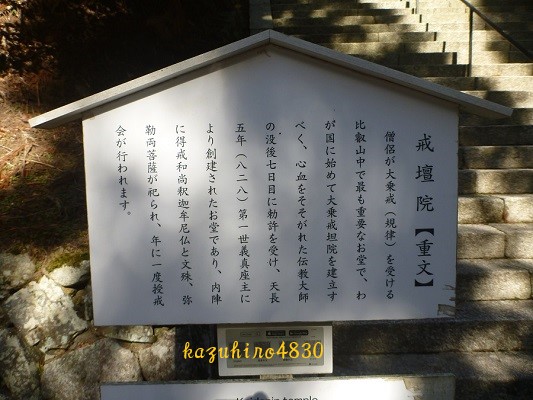 戒壇院【重文】
僧侶が大乗戒（規律）を受ける
比叡山中で最も重要なお堂で、わ
が国に始めて大乗戒坦院を建立す
べく、心血をそそがれた伝教大師
の没後七日目に勅許を受け、天長
五年（八二八）第一世義真座主に
より創建されたお堂であり、内陣
に得戒和尚釈迦牟尼仏と文殊、弥
勒両菩薩が祀られ、年に一度授戒
会が行われます。
kazuhiro4830
Kaidanin temple